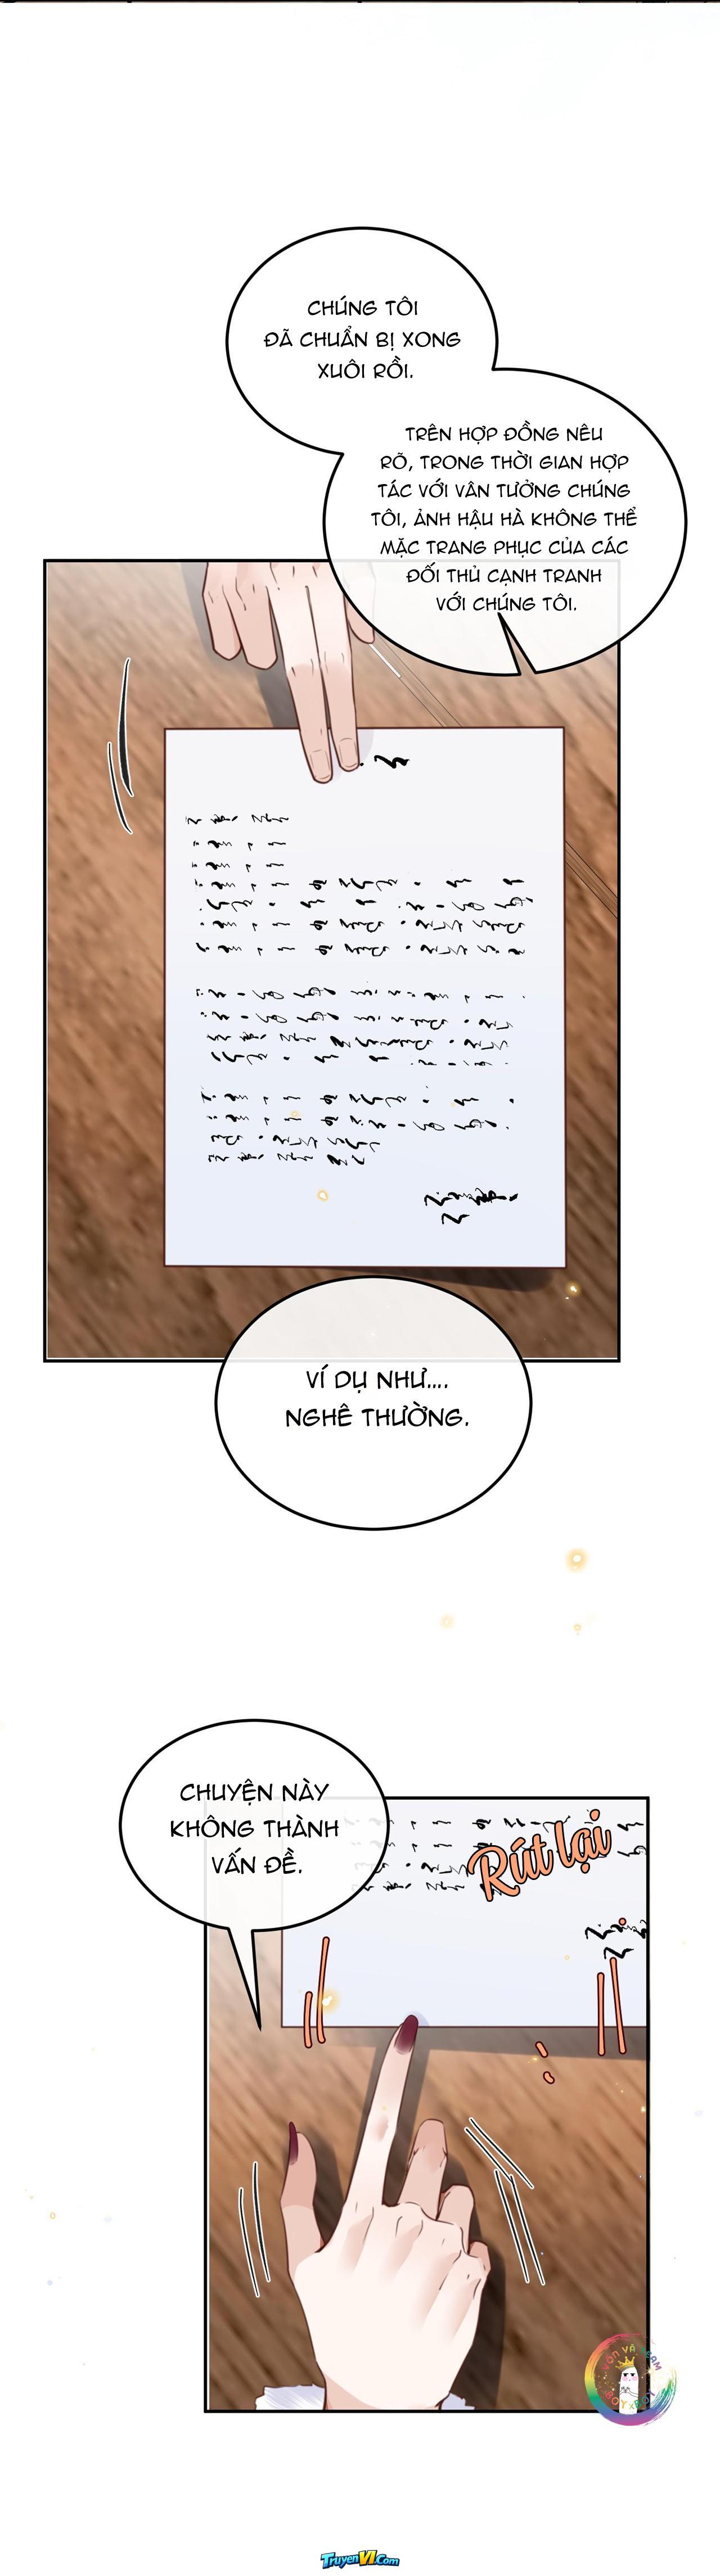 CHÚNG TÔI
ĐÃ CHUẨN BỊ XONG
XUÔI RỒI.
TRÊN HỢP ĐỒNG NÊU
RÕ, TRONG THỜI GIAN HỢP
TÁC VỚI VÂN TƯỞNG CHÚNG
TÔI, ẢNH HẬU HÀ KHÔNG THỂ
MẶC TRANG PHỤC CỦA CÁC
ĐỐI THỦ CẠNH TRANH
VỚI CHÚNG TÔI.
VÍ DỤ NHƯ....
NGHÊ THƯỜNG.
CHUYỆN NÀY
KHÔNG THÀNH
VẤN ĐỀ.
Rút lại
TruyenVI.Com